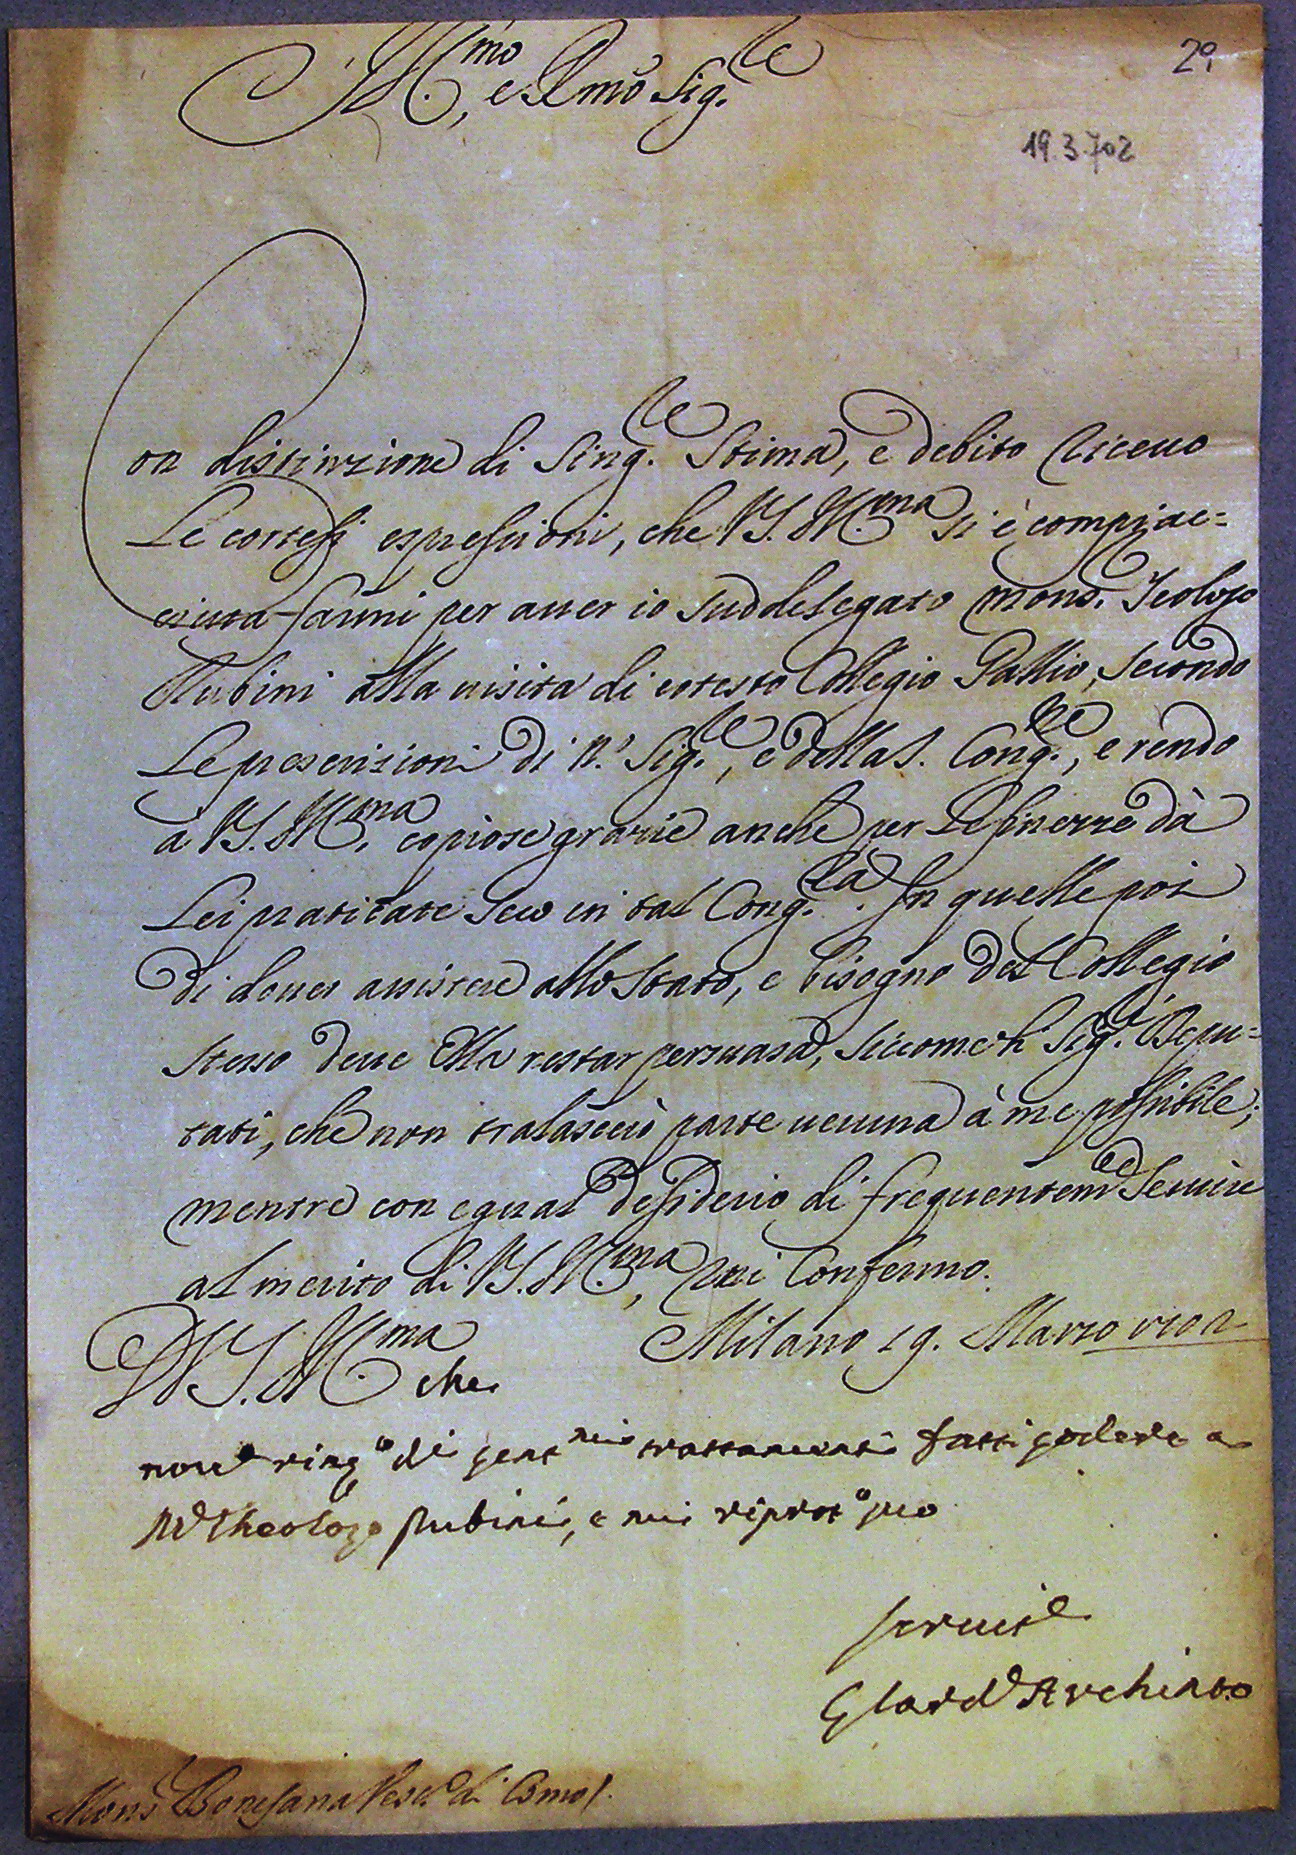 29
Ill.mo, e R.mo Sig.re
19.3.702
Con distinzione di Sing.re Stima, e debito riceuo
Le cortesi espressioni, che V.S. Ill.ma si è compiac=
ciuta farmi per auer io suddelegato Mons. Teologo
Rubini alla uisita di cotesto Collegio Gallio, secondo
Le prescrizioni di N.º Sig.re, e della S. Cong.ne, e rendo
a V.S. Ill.ma copiose grazie anche per Le finezze dà
Lei praticate seco in tal Cong.ra. In quelle poi
di douer assistere allo Stato, e bisogno del Collegio
stesso deue Ella restar persuasa, siccome li Sig.ri Depu=
tati, che non tralascerò parte ueruna à me possibile;
mentre con egual desiderio di frequentem.te Seruire
al merito di V.S. Ill.ma, mi Confermo.
Milano 19. Marzo 1702
D V.S. Ill.ma che
nou.e ring.o de gent.mi trattamenti fatti godere a
M.r Theologo Rubini, e mi riprot.o
Seruit.e
G Card.e Archinto
Mons.r Bonesana Vesc.o di Como /.